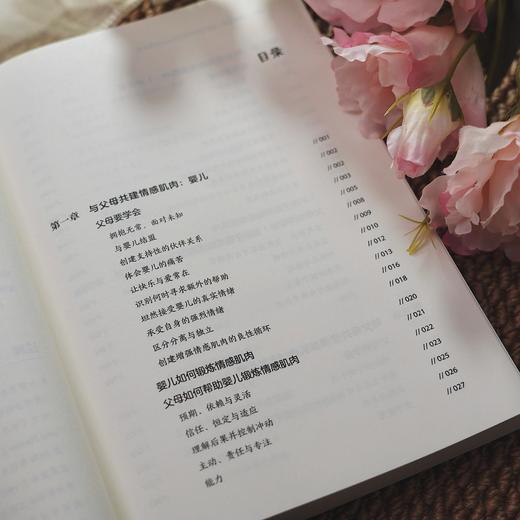 目录
第一章 与父母共建情感肌肉：婴儿 //001
父母要学会 //002
拥抱无常，面对未知 //002
与婴儿结盟 //003
创建支持性的伙伴关系 //005
体会婴儿的痛苦 //008
让快乐与爱常在 //009
识别何时寻求额外的帮助 //010
坦然接受婴儿的真实情绪 //012
承受自身的强烈情绪 //013
区分分离与独立 //016
创建增强情感肌肉的良性循环 //018
婴儿如何锻炼情感肌肉 //020
父母如何帮助婴儿锻炼情感肌肉 //021
预期、依赖与灵活 //022
信任、恒定与适应 //023
理解后果并控制冲动 //025
主动、责任与专注 //026
能力 //027